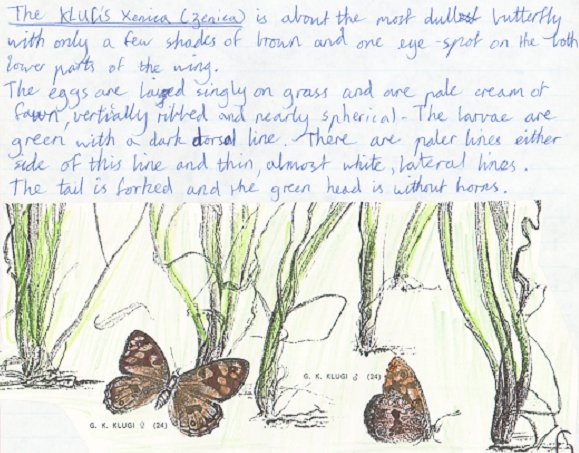 The KLUGIS Xenica (Zenica) is about the most dullest butterfly
with only a few shades of brown and one eye-spot on the both
lower parts of the wing.
The eggs are layed singly on grass and are pale cream of
fawn, vertically ribbed and nearly spherical. The larvae are
green with a dark dorsal line. There are paler lines either
side of this line and thin, almost white, lateral lines.
The tail is forked and the green head is without horns.
G. K. KLUGI ♂ (24)
G. K. KLUGI ♀ (24)